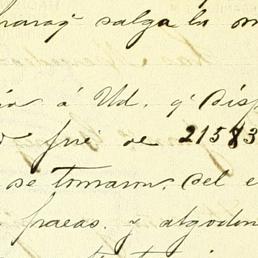 salga la
á Ud. q' disp
fué de 21583
se tomaron. del e
fracas. y algodon